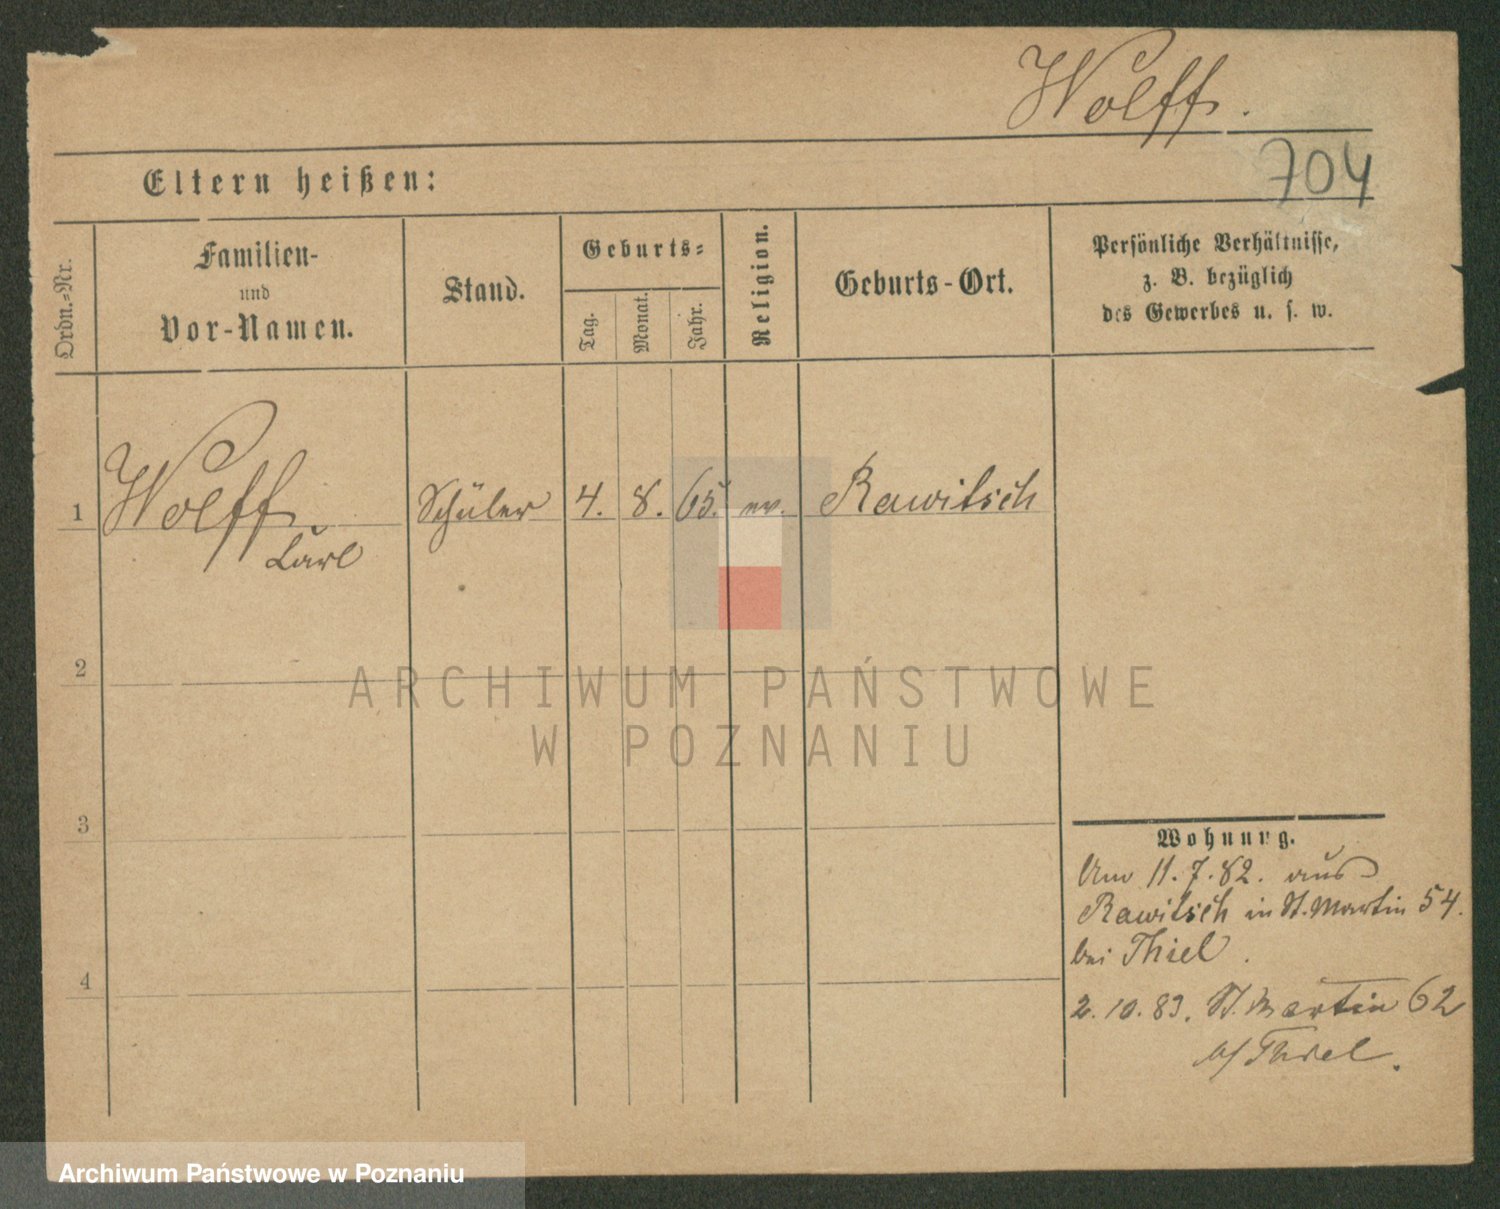 Wolff.
704
Eltern heißen:
Ordn.=Nr.
Familien-
und
Vor-Namen.
Stand.
Geburts=
Tag.
Monat.
Jahr.
Religion.
Geburts-Ort.
Persönliche Verhältnisse,
z. B. bezüglich
des Gewerbes u. s. w.
1 Wolff. Schüler 4. 8. 65. ev. Rawitsch
Carl
2
ARCHIWUM PAŃSTWOWE
W POZNANIU
3
Wohnung.
Am 11.7.82. aus
Rawitsch in St. Martin 54.
bei Thiel.
4
2.10.83. St. Martin 62
b/ Thiel.
Archiwum Państwowe w Poznaniu